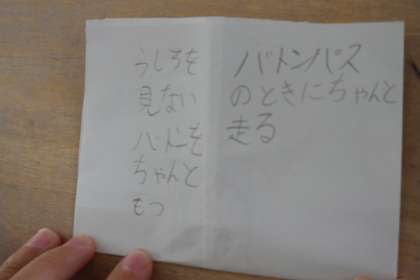 バトンパス
のときにちゃんと
走る
うしろを
見ない
バトンを
ちゃんと
もつ